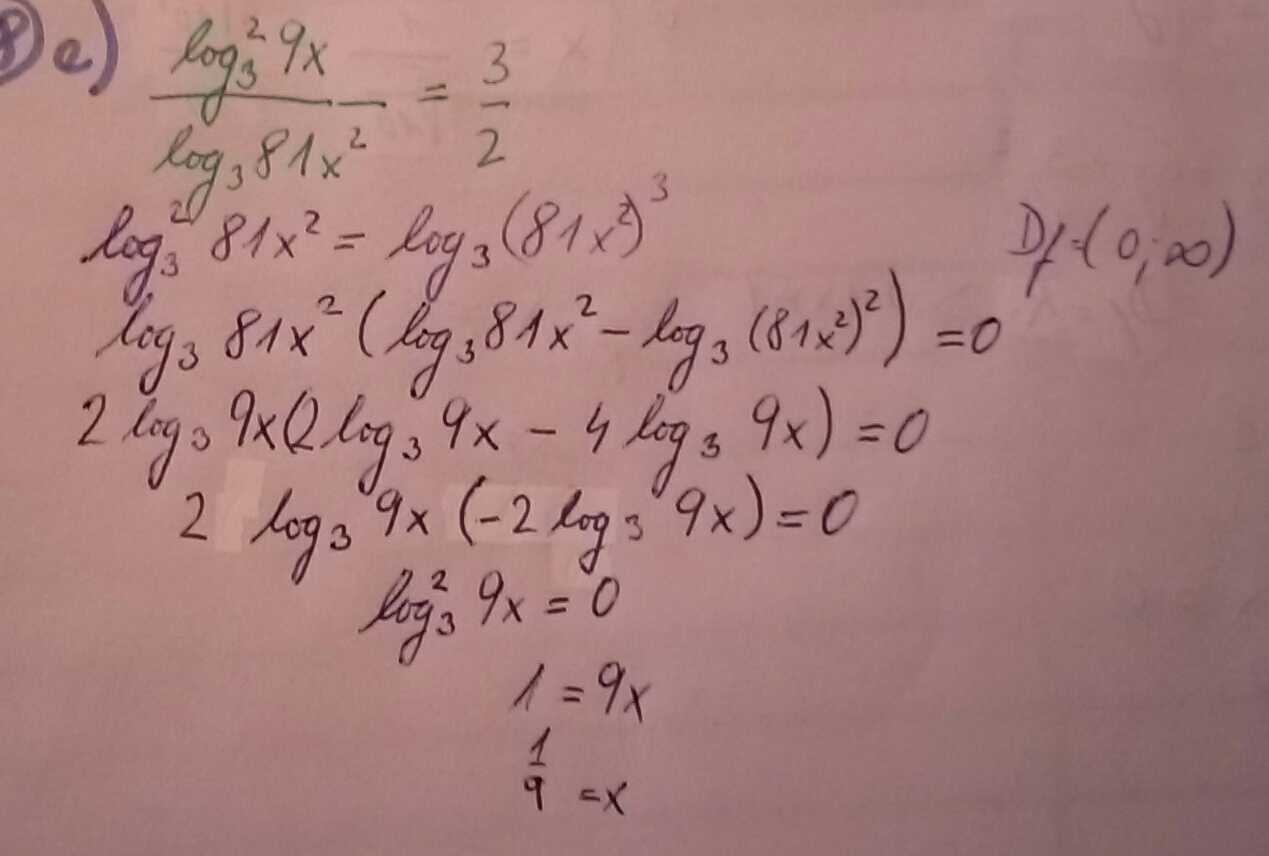 8) e) log₃² 9x / log₃ 81x² = 3/2
log₃² 81x² = log₃ (81x²)³ Df=(0;∞)
log₃ 81x² (log₃ 81x² - log₃ (81x²)²) = 0
2 log₃ 9x (2 log₃ 9x - 4 log₃ 9x) = 0
2 log₃ 9x (-2 log₃ 9x) = 0
log₃² 9x = 0
1 = 9x
1/9 = x